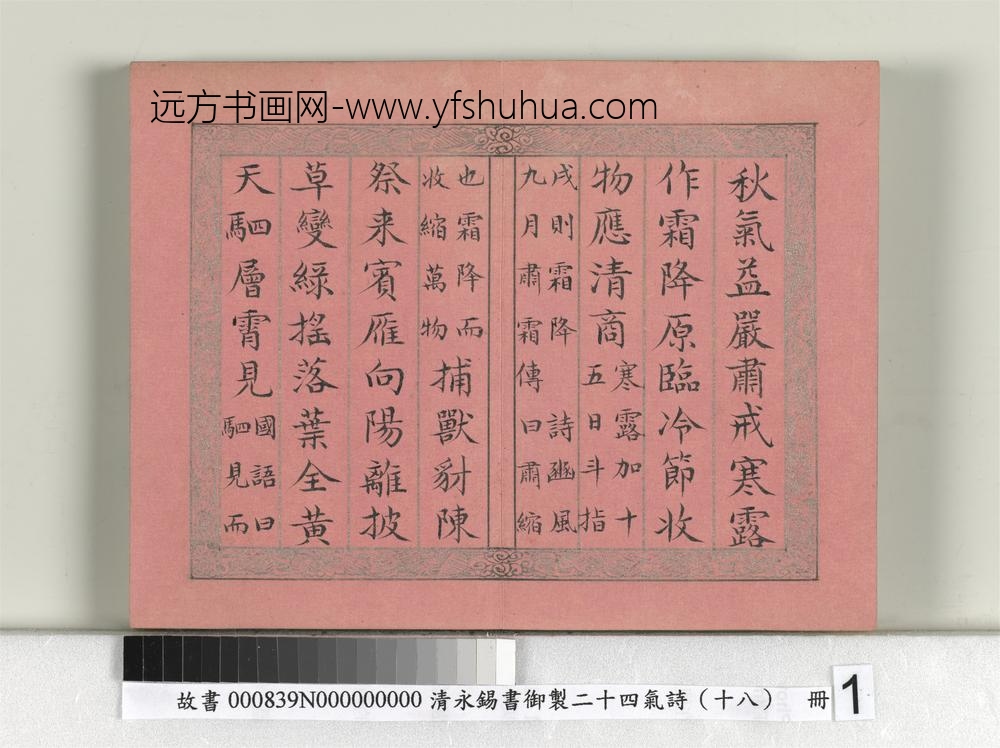 远方书画网-www.yfshuhua.com
秋氣益嚴肅戒寒露
作霜降原臨冷節收
物應清商
寒露加十
五日斗指
戌則霜降 詩豳風
九月肅霜傳曰肅縮
也霜降而
收縮萬物
捕獸豺陳
祭来賓雁向陽離披
草變綠搖落葉全黃
天駟層霄見
國語曰
駟見而
故書 000839N000000000 清永錫書御製二十四氣詩（十八） 冊 1